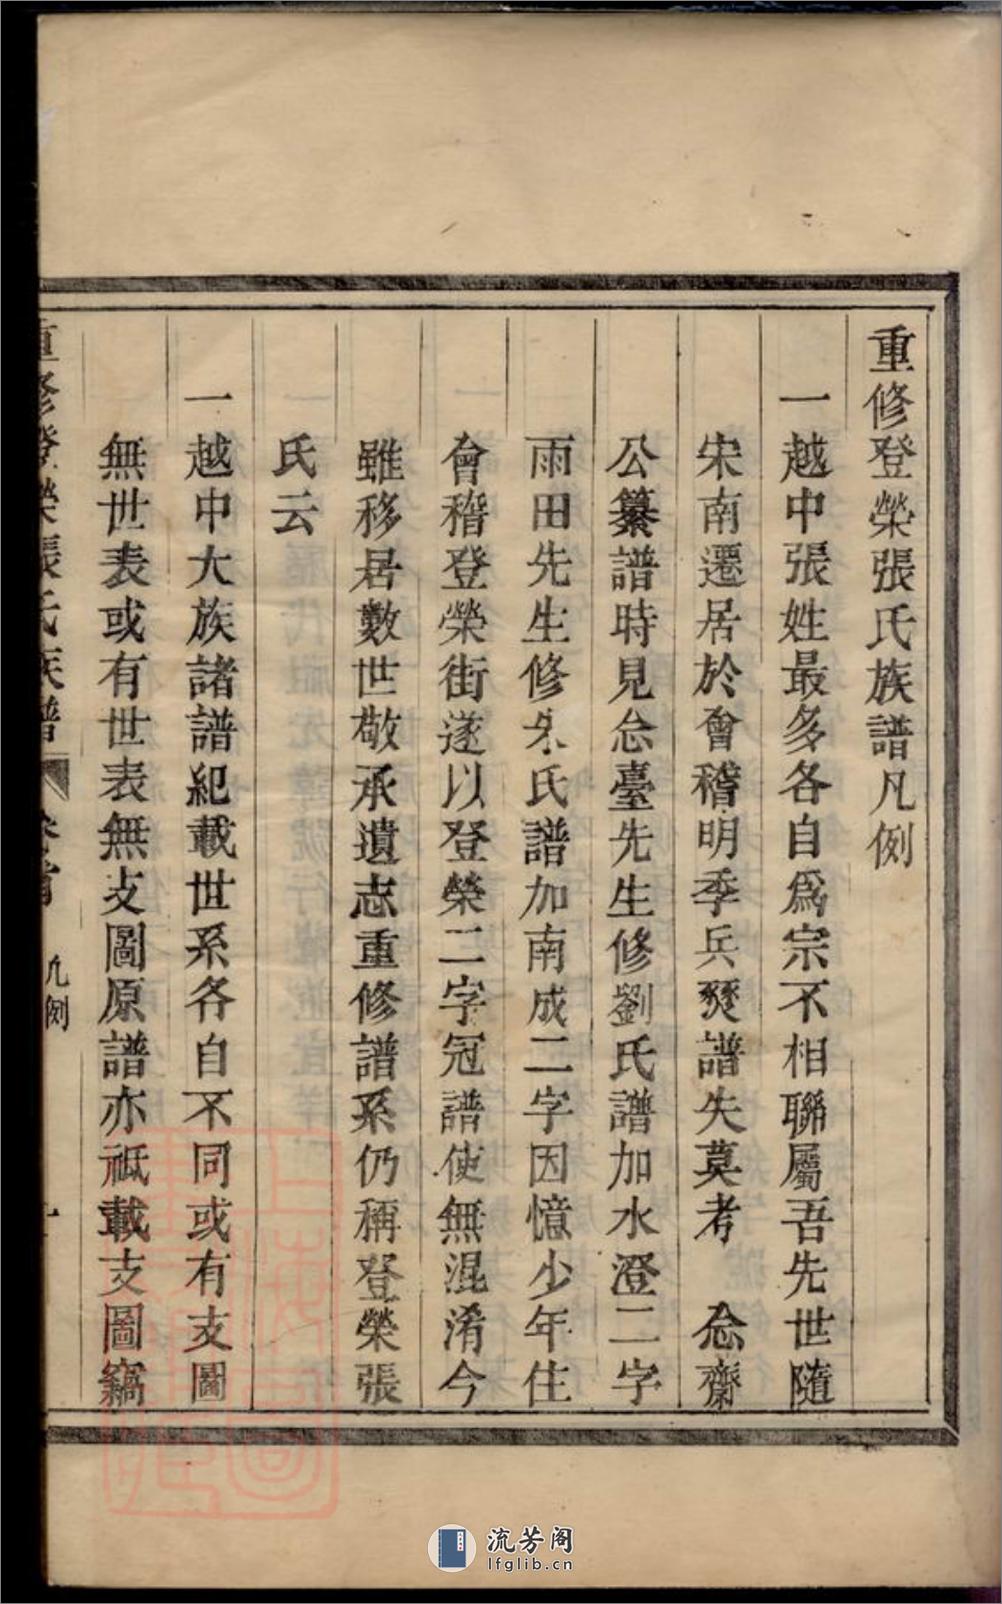 重修登榮張氏族譜凡例
一越中張姓最多各自爲宗不相聯屬吾先世隨
宋南遷居於會稽明季兵燹譜失莫考 念齋
公纂譜時見念臺先生修劉氏譜加水澄二字
雨田先生修朱氏譜加南成二字因憶少年住
會稽登榮街遂以登榮二字冠譜使無混淆今
雖移居數世敬承遺志重修譜系仍稱登榮張
氏云
一越中大族諸譜紀載世系各自不同或有支圖
無世表或有世表無支圖原譜亦祗載支圖竊
重修登榮張氏族譜 卷首 凡例 一
流芳阁
lfglib.cn